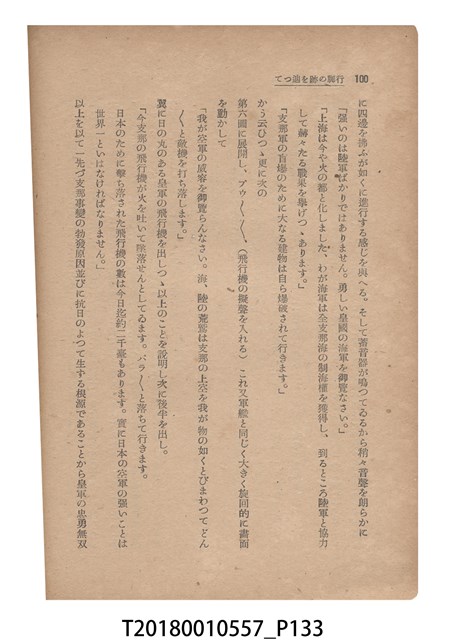 100 行脚の跡を追つて
に四邊を拂ふが如くに進行する感じを與へる。そして蓄音器が鳴つてゐるから稍々音聲を朗らかに
「强いのは陸軍ばかりではありません。勇しい皇國の海軍を御覽なさい。」
「上海は今や火の都と化しました、わが海軍は全支那海の制海權を獲得し、到るところ陸軍と協力
して赫々たる戰果を擧げつゝあります。」
「支那軍の盲爆のために大なる建物は自ら爆破されて行きます。」
かう云ひつゝ更に次の
第六圖に展開し、ブゥ〱〱、(飛行機の擬聲を入れる)これ又軍艦と同じく大きく旋回的に畫面
を動かして
「我が空軍の威容を御覽らんなさい。海、陸の荒鷲は支那の上空を我が物の如くとびまわつてどん
〱と敵機を打ち落します。」
翼に日の丸のある皇軍の飛行機を出しつゝ以上のことを說明し次に後半を出し。
「今支那の飛行機が火を吐いて墜落せんとしてゐます。バラ〱と落ちて行きます。
日本のために擊ち落された飛行機の數は今日迄約二千臺もあります。實に日本の空軍の强いことは
世界一といはなければなりません。」
以上を以て一先づ支那事變の勃發原因並びに抗日のよつて生する根源であることから皇軍の忠勇無双
T20180010557_P133